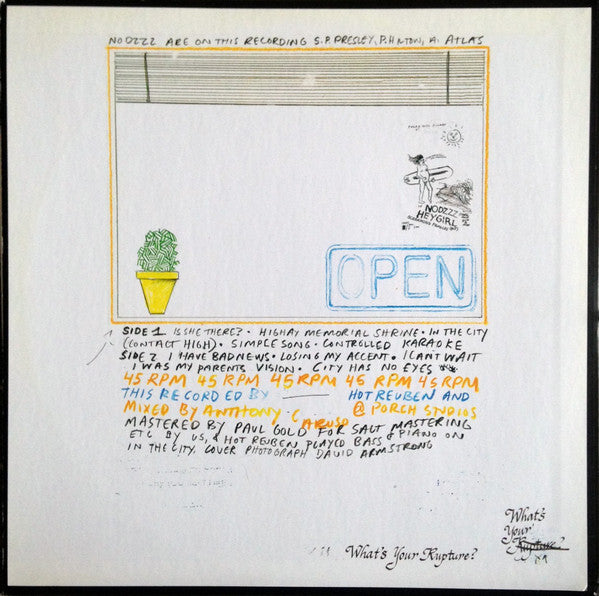 NODZZZ ARE ON THIS RECORDING S.P. PRESLEY, P. HILTON, A. ATLAS
NODZZZ
HEY GIRL
OPEN
SIDE 1 IS SHE THERE? • HIGHAY MEMORIAL SHRINE • IN THE CITY
(CONTACT HIGH) • SIMPLE SONG • CONTROLLED KARAOKE
SIDE 2 I HAVE BAD NEWS • LOSING MY ACCENT • I CANT WAIT
I WAS MY PARENTS VISION • CITY HAS NO EYES
45 RPM 45 RPM 45 RPM 45 RPM 45 RPM
THIS RECORDED BY ——— HOT REUBEN AND
MIXED BY ANTHONY CARUSO @ PORCH STUDIOS
MASTERED BY PAUL GOLD FOR SALT MASTERING
ETC BY US, & HOT REUBEN PLAYED BASS & PIANO ON
IN THE CITY. COVER PHOTOGRAPH DAVID ARMSTRONG
What's Your Rupture?
What's
Your
Rupture?